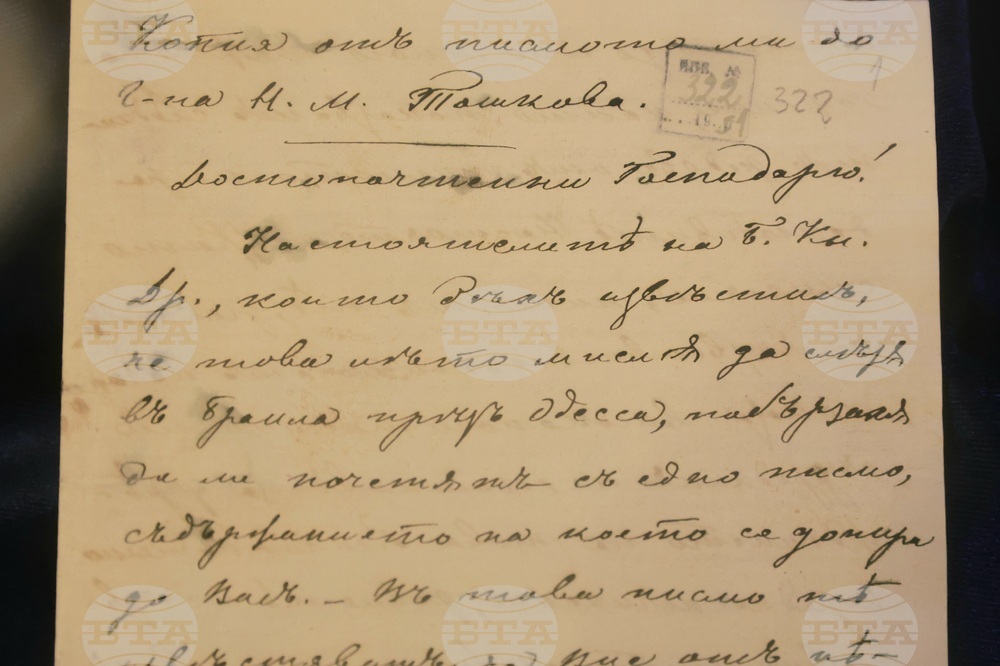 Копия отъ писмото ми до
г-на Н. М. Тошкова.
ИНВ. №
322
19 51
322
1
Достопочтенни Господарю!
Настоятелитѣ на Б. Кн.
Др., които бѣхъ извѣстилъ,
че това лѣто мислѭ да слѣзѫ
въ Браила прѣзъ Одесса, побързахѫ
да ме почетѭтъ съ едно писмо,
съдържанието на което се допира
до Васъ. – Въ това писмо тѣ
Вие отъ нѣ-
БТА